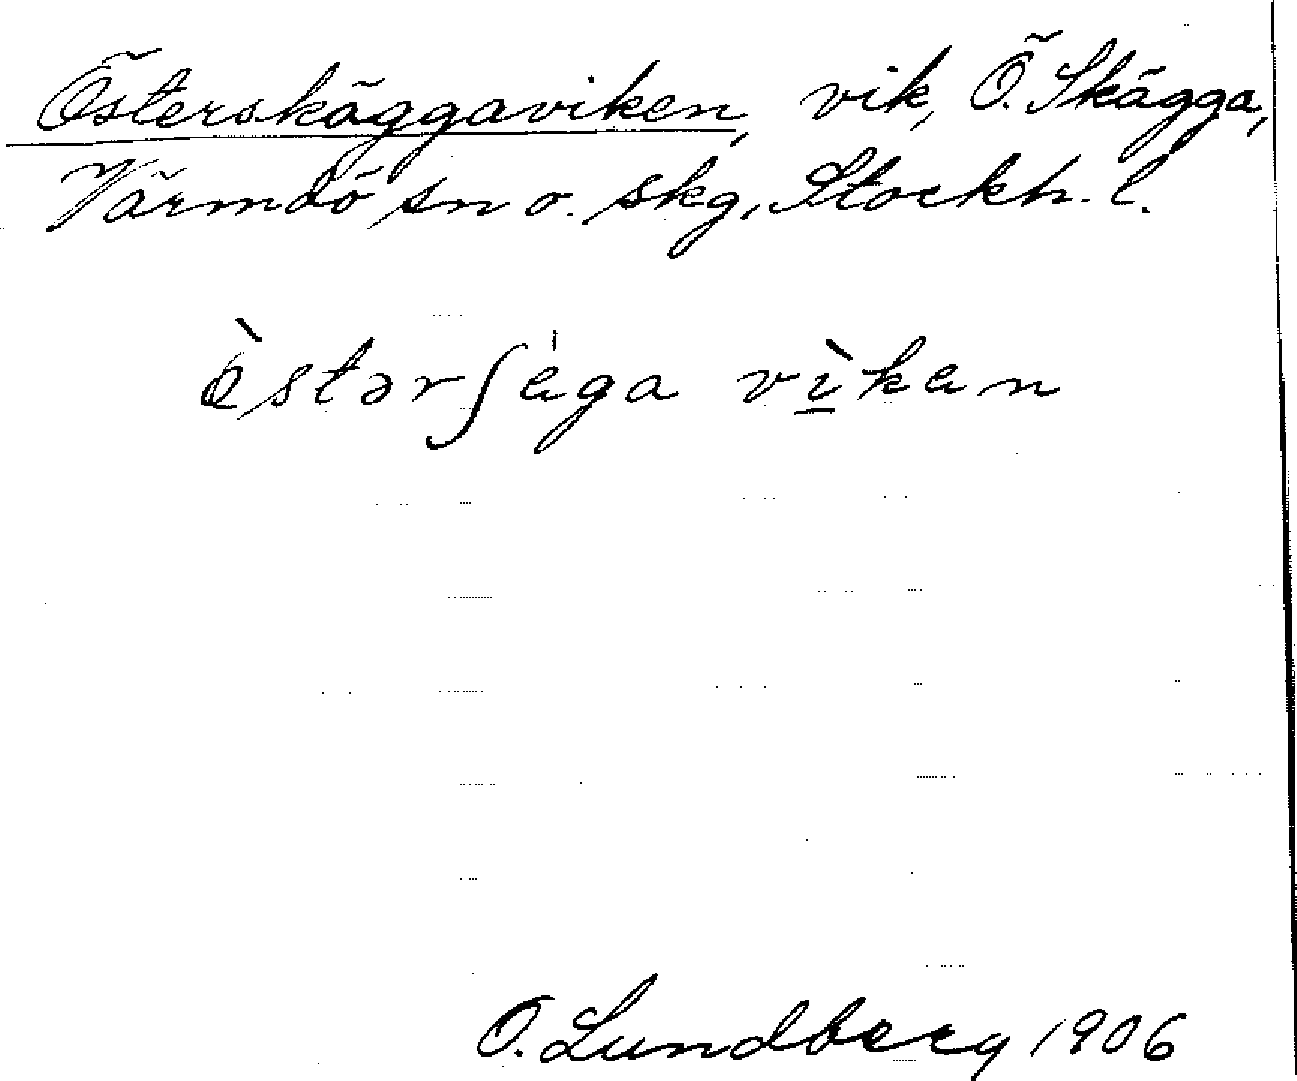 Österskäggaviken, vik, Ö. Skägga,
Värmdö sn o. skg, Stockh. l.
ə̀stərʃèga vì̱kən
O. Lundberg 1906